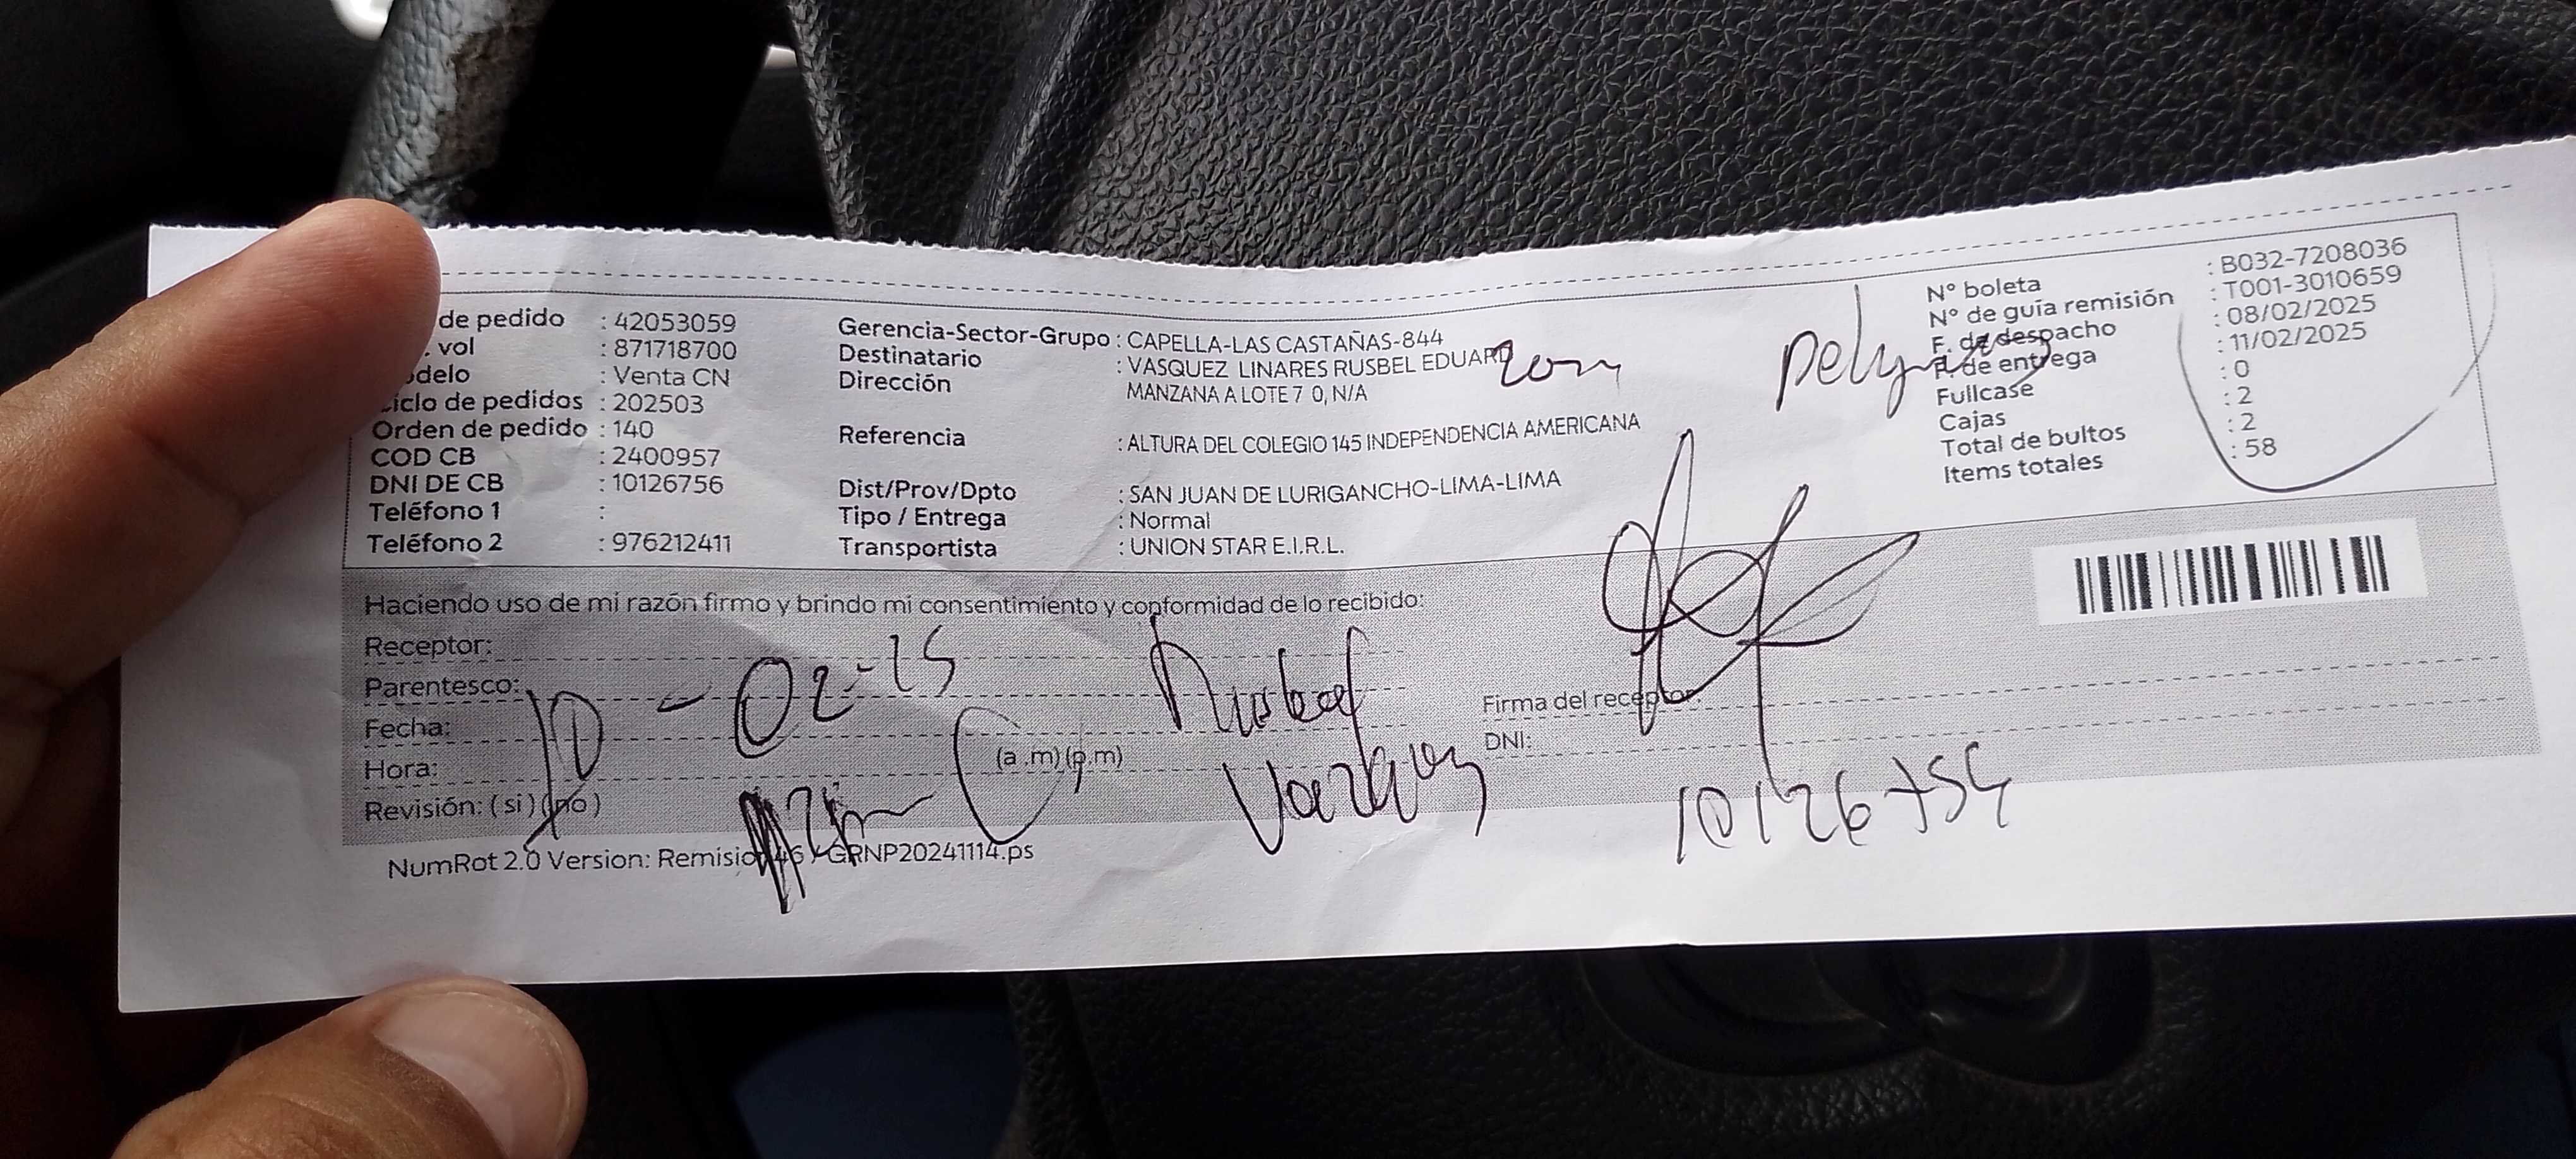 de pedido : 42053059
. vol : 871718700
odelo : Venta CN
iclo de pedidos : 202503
Orden de pedido : 140
COD CB : 2400957
DNI DE CB : 10126756
Teléfono 1 :
Teléfono 2 : 976212411
Gerencia-Sector-Grupo : CAPELLA-LAS CASTAÑAS-844
Destinatario : VASQUEZ LINARES RUSBEL EDUARD
Dirección MANZANA A LOTE 7 0, N/A
Referencia : ALTURA DEL COLEGIO 145 INDEPENDENCIA AMERICANA
Dist/Prov/Dpto : SAN JUAN DE LURIGANCHO-LIMA-LIMA
Tipo / Entrega : Normal
Transportista : UNION STAR E.I.R.L.
N° boleta : B032-7208036
N° de guía remisión : T001-3010659
F. de despacho : 08/02/2025
F. de entrega : 11/02/2025
Fullcase : 0
Cajas : 2
Total de bultos : 2
Items totales : 58
Haciendo uso de mi razón firmo y brindo mi consentimiento y conformidad de lo recibido:
Receptor:
Parentesco:
Fecha: 10-02-25
Hora: (a .m) (p.m)
Revisión: ( si ) ( no )
Rusbel
Vazquez
Firma del receptor:
DNI:
NumRot 2.0 Version: Remision 46 / GRNP20241114.ps